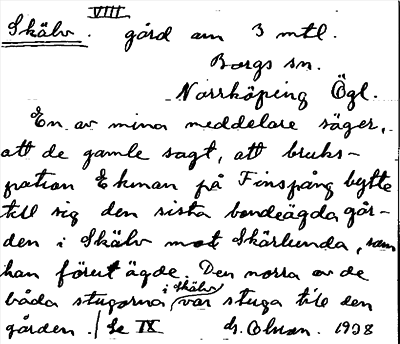 VIII
Skälv. gård om 3 mtl.
Borgs sn.
Norrköping Ögl.
En av mina meddelare säger,
att de gamle sagt, att bruks-
patron Ekman på Finspång bytte
till sig den sista bondeägda går-
den i Skälv mot Skärlunda, som
han förut ägde. Den norra av de
båda stugorna i Skälv var stuga till den
gården. / Se IX 1938